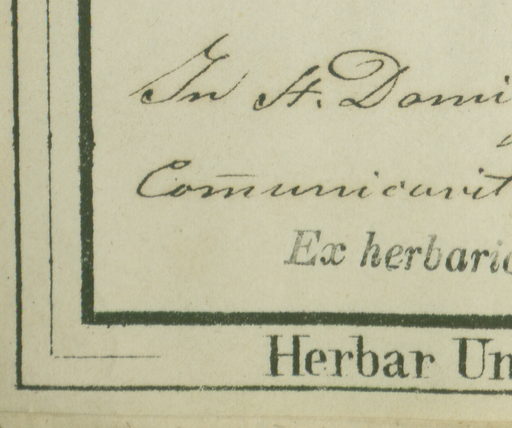 In St. Domi
Com̅unicavit
Ex herbario
Herbar Un